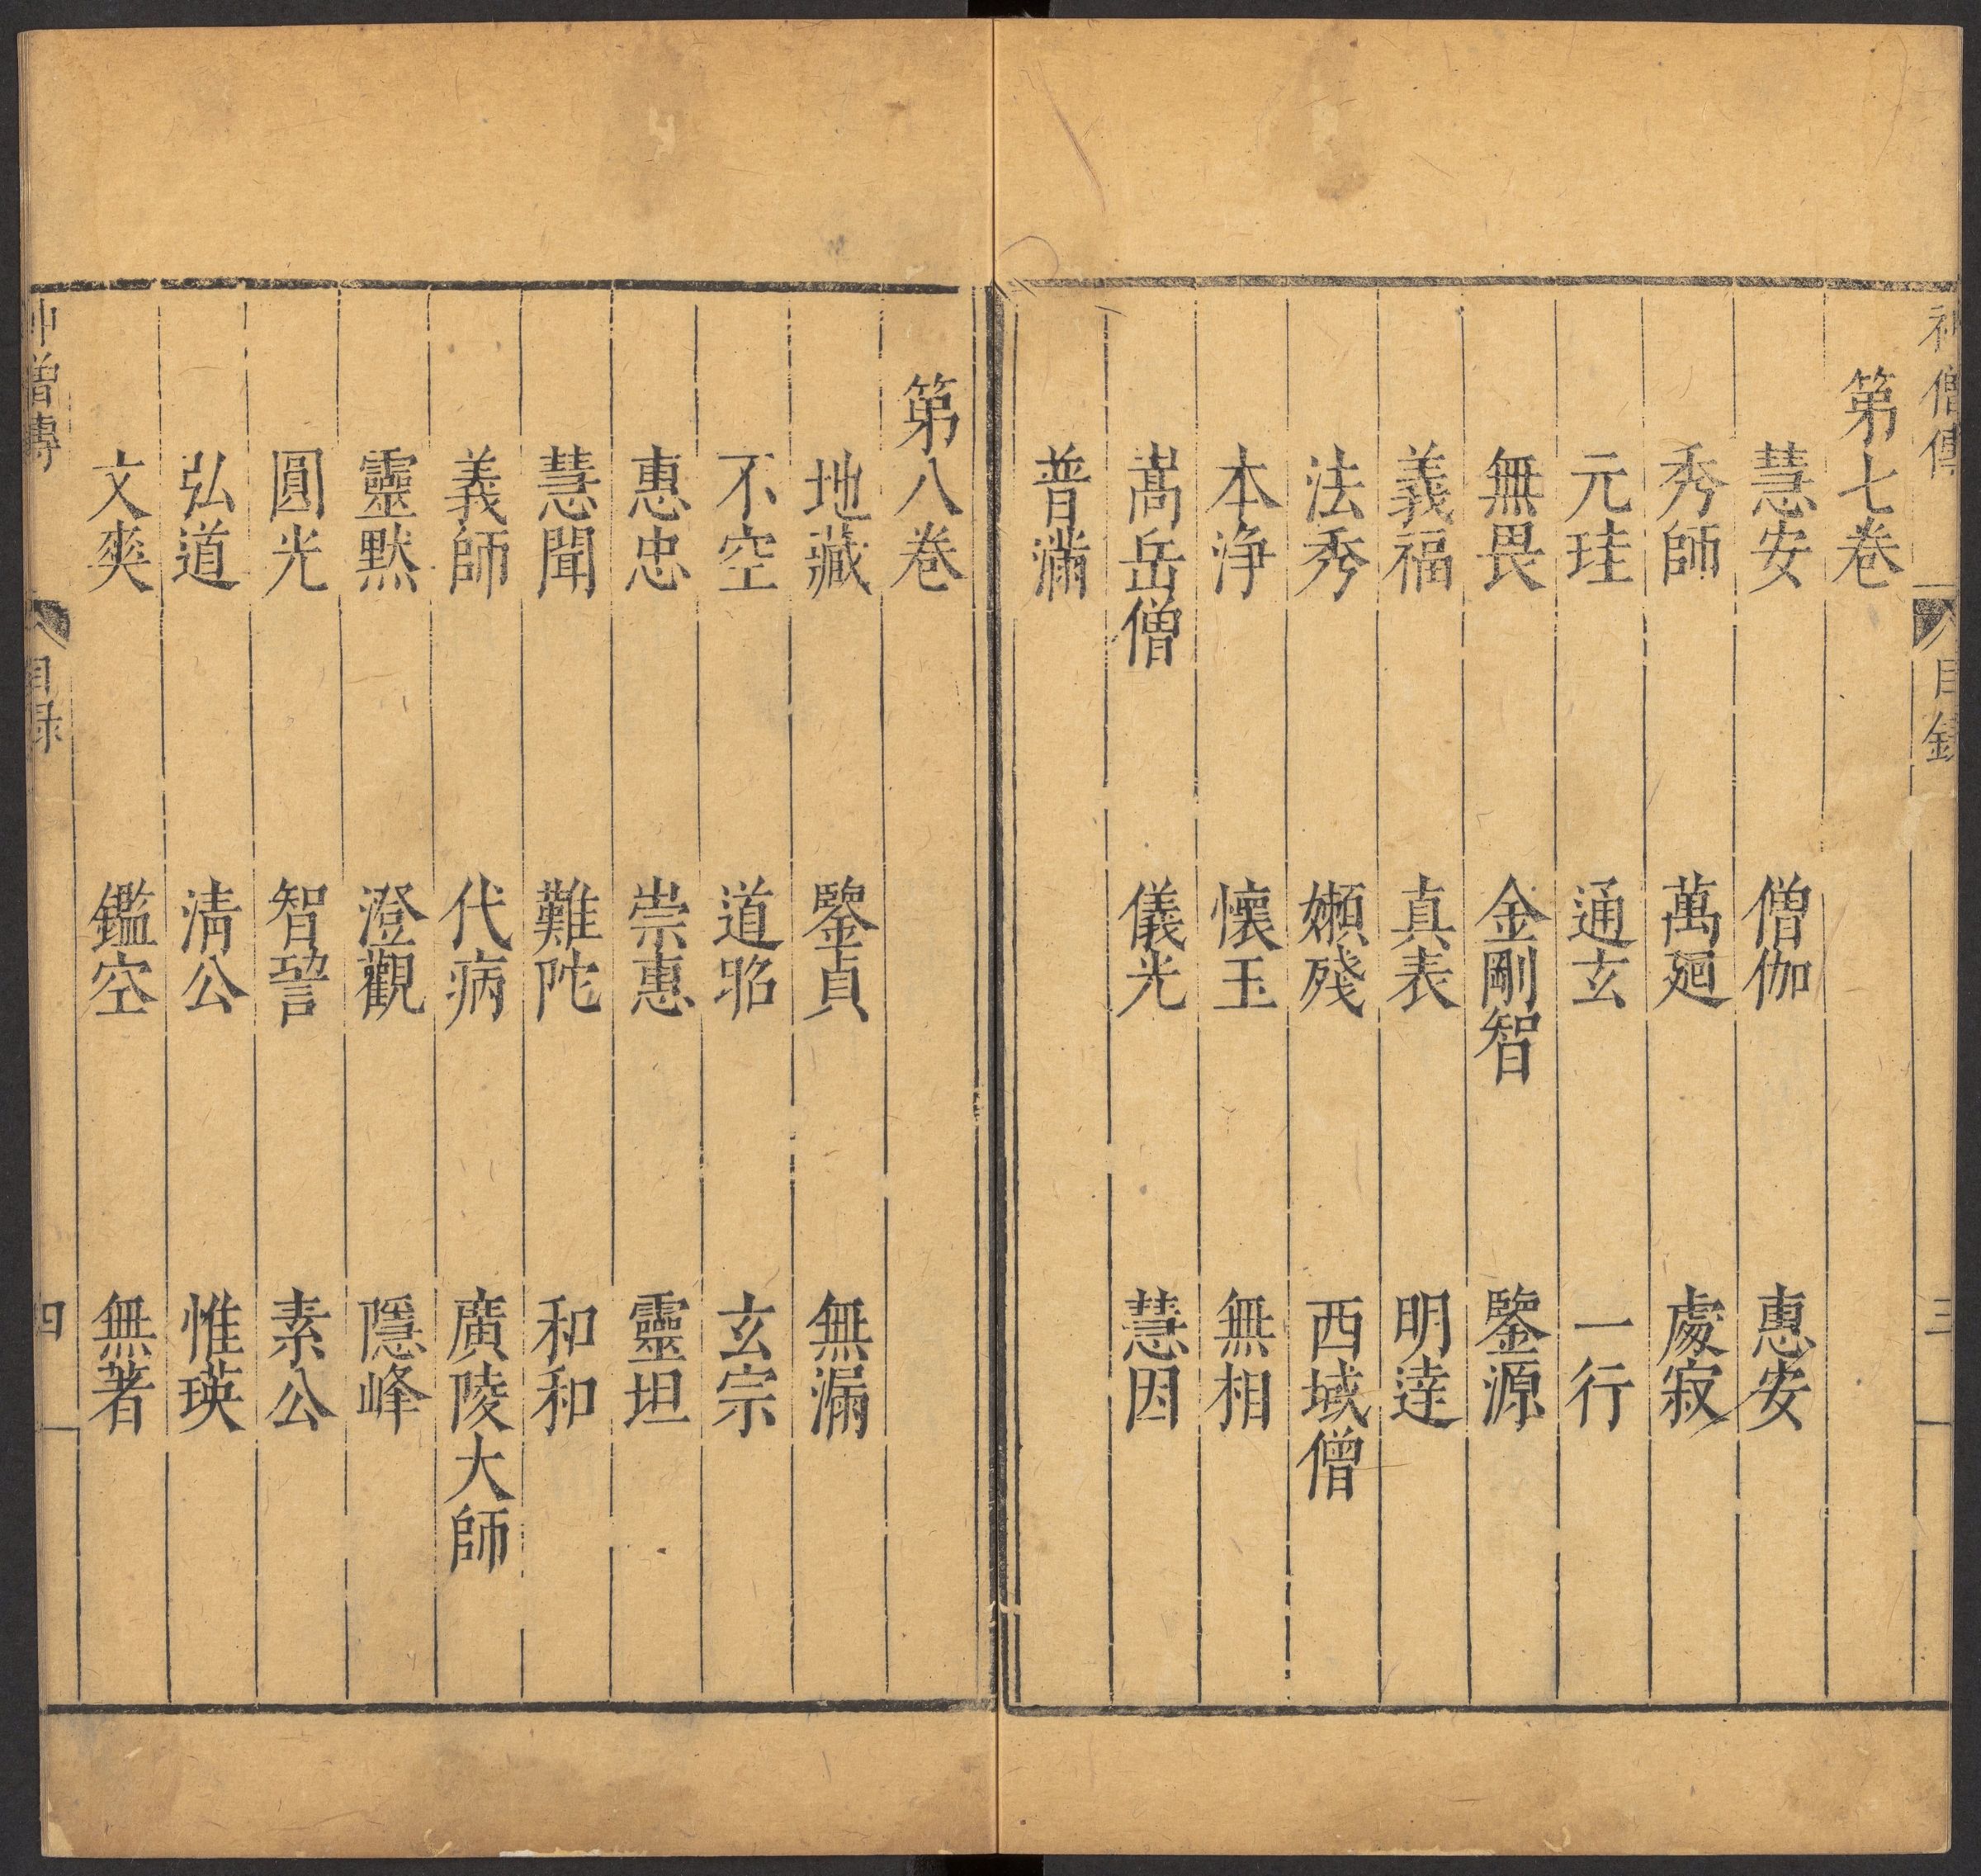 神僧傳 目錄 三
第七卷
慧安 僧伽 惠安
秀師 萬廻 處寂
元珪 通玄 一行
無畏 金剛智 鑒源
義福 真表 明達
法秀 嬾殘 西域僧
本淨 懷玉 無相
嵩岳僧 儀光 慧因
普滿
第八卷
地藏 鑒貞 無漏
不空 道昭 玄宗
惠忠 崇惠 靈坦
慧聞 難陀 和和
義師 代病 廣陵大師
靈默 澄觀 隱峰
圓光 智𧦬 素公
弘道 清公 惟瑛
文爽 鑑空 無著
神僧傳 目録 四